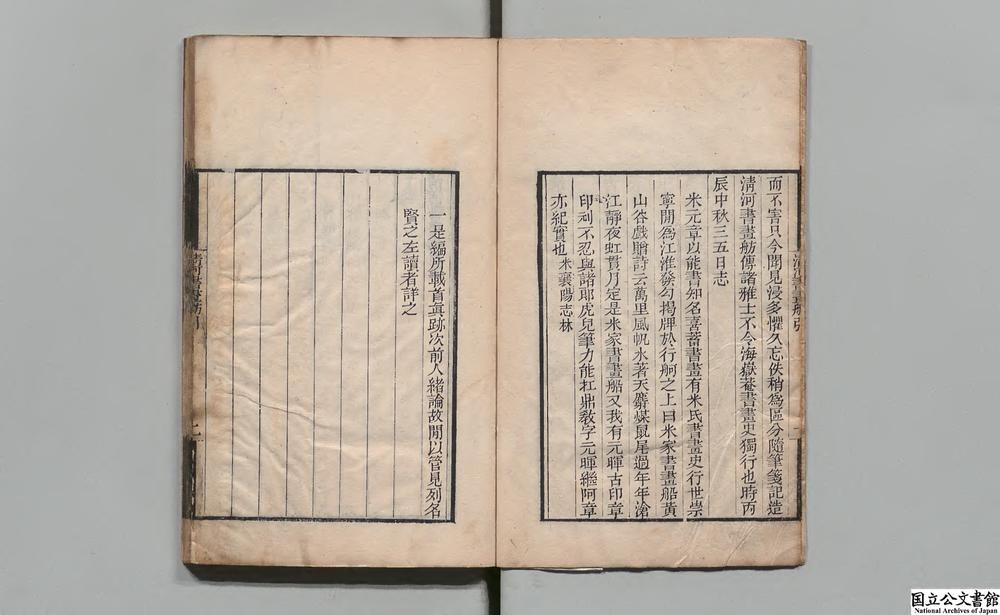 而不害只今聞見浸多懼久忘佚稍為區分隨筆箋記造
清河書畫舫傳諸雅士不令海嶽菴書畫史獨行也時丙
辰中秋三五日志
米元章以能書知名喜蓄書畫有米氏書畫史行世崇
寧間為江淮發勾揭牌於行舸之上曰米家書畫船黃
山谷戲贈詩云萬里風帆水著天麝煤鼠尾過年年滄
江靜夜虹貫月定是米家書畫船又我有元暉古印章
印刓不忍與諸郎虎兒筆力能扛鼎敎字元暉繼阿章
亦紀實也米襄陽志林
一是編所載首眞跡次前人緒論故閒以管見列名
賢之左讀者詳之
清河書畫舫引
二
国立公文書館
National Archives of Japan